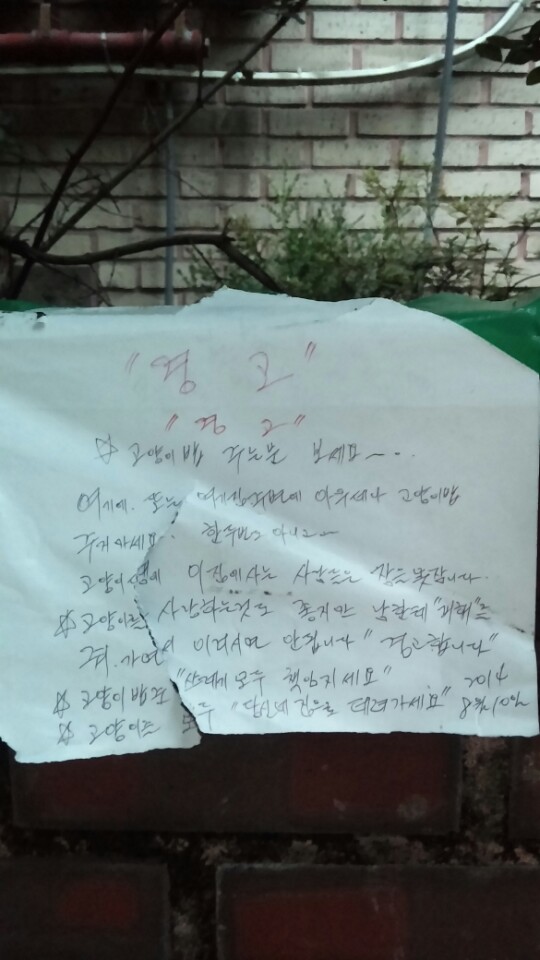 "경 고"
"경 고"
☆ 고양이밥 주는분 보세요~..
여기에. 또는 여기집주변에 아무데나 고양이밥
주지마세요. 한두번도 아니고~
고양이땜에 이집에사는 사람들은 잠을못잡니다.
☆ 고양이를 사랑하는것도 좋지만 남한테 "피해"를
줘.가면서 이러시면 안됩니다 "경고합니다"
☆ 고양이밥준 모두 책임지세요"
☆ 고양이를 모두 "당신네 집으로 데려가세요" 2014 8월10일